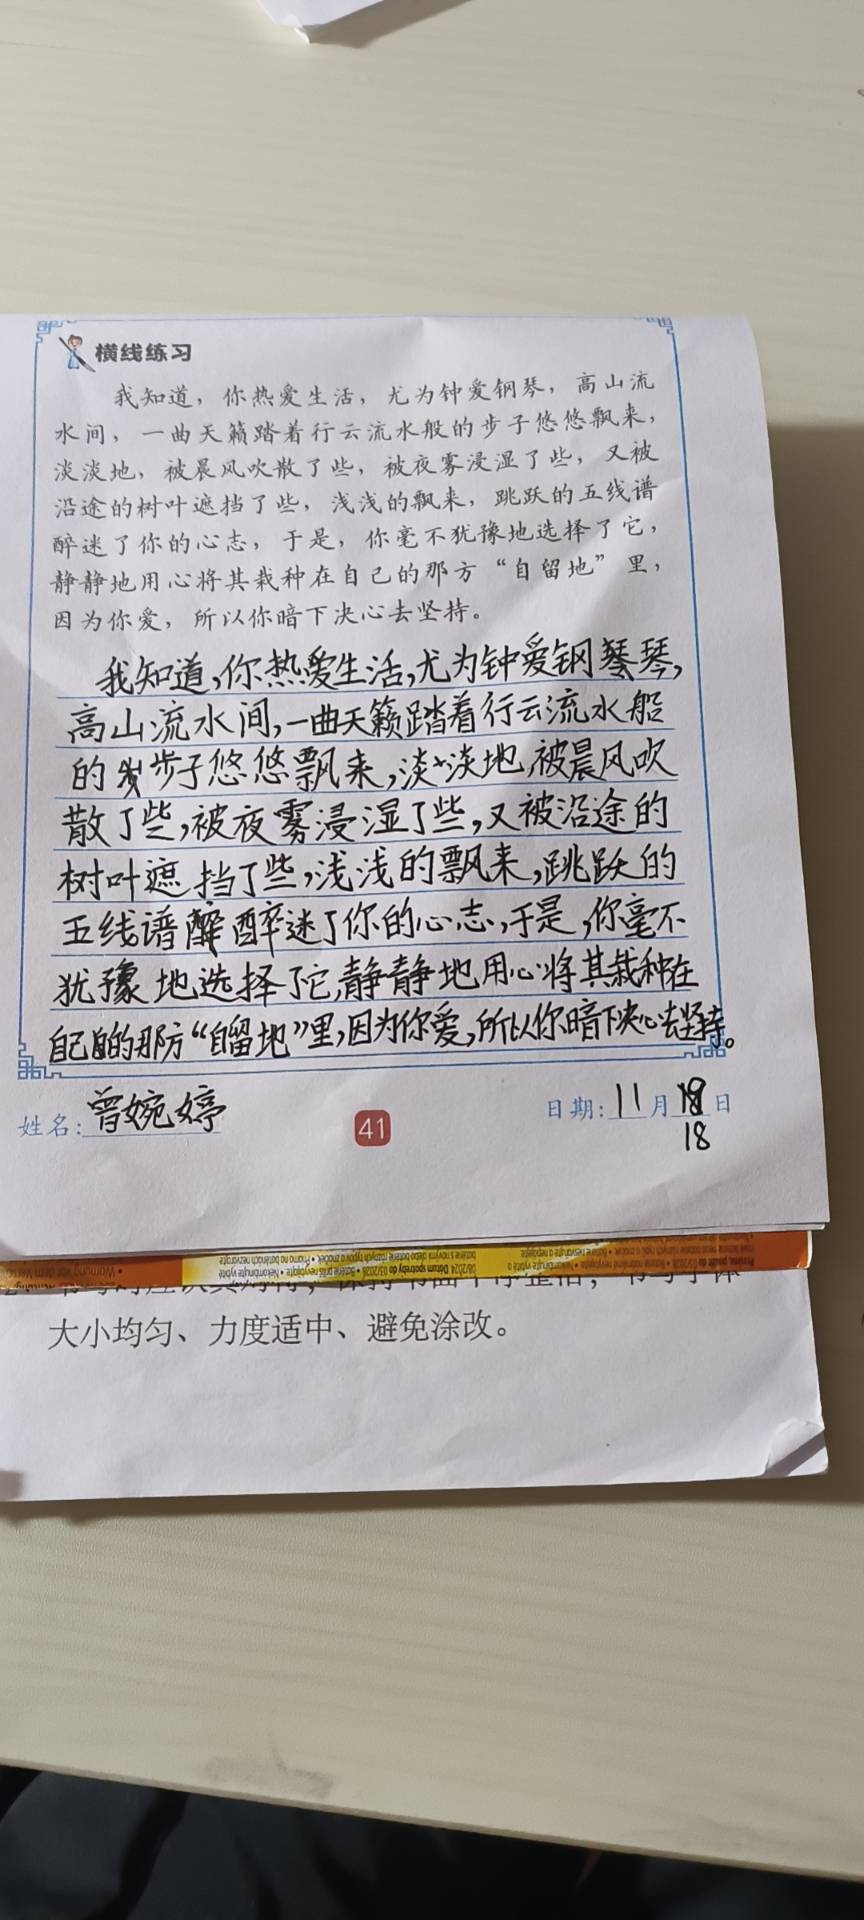 横线练习
我知道，你热爱生活，尤为钟爱钢琴，高山流
水间，一曲天籁踏着行云流水般的步子悠悠飘来，
淡淡地，被晨风吹散了些，被夜雾浸湿了些，又被
沿途的树叶遮挡了些，浅浅的飘来，跳跃的五线谱
醉迷了你的心志，于是，你毫不犹豫地选择了它，
静静地用心将其栽种在自己的那方“自留地”里，
因为你爱，所以你暗下决心去坚持。
我知道，你热爱生活，尤为钟爱钢琴，
高山流水间，一曲天籁踏着行云流水船
的步子悠悠飘来，淡淡地，被晨风吹
散了些，被夜雾浸湿了些，又被沿途的
树叶遮挡了些，浅浅的飘来，跳跃的
五线谱醉迷了你的心志，于是，你毫不
犹豫地选择了它，静静地用心将其栽种在
自己的那方“自留地”里，因为你爱，所以你暗下决心去坚持。
姓名：曾婉婷
41
日期：11月18日
18
大小均匀、力度适中、避免涂改。